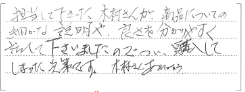 担当して下さった木村さんが商品についての
細かな説明や、良さを分かりやすく
話して下さいましたのでつい、購入して
しまった次第です。木村さんありがとう